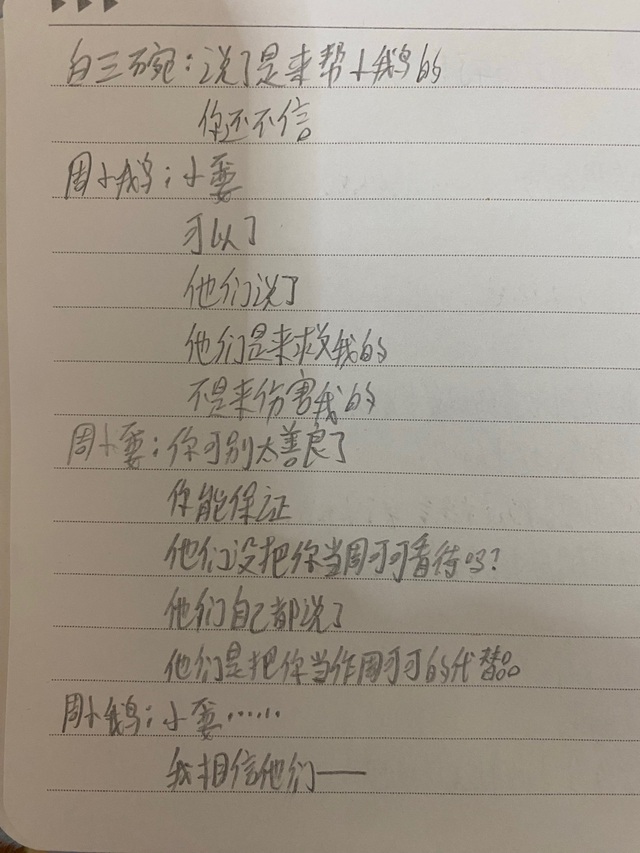 白三碗：说了是来帮小鹅的
你还不信
周小鹅：小雯
可以了
他们说了
他们是来救我的
不是来伤害我的
周小雯：你可别太善良了
你能保证
他们没把你当周可可看待吗？
他们自己都说了
他们是把你当作周可可的代替品
周小鹅：小雯……
我相信他们——